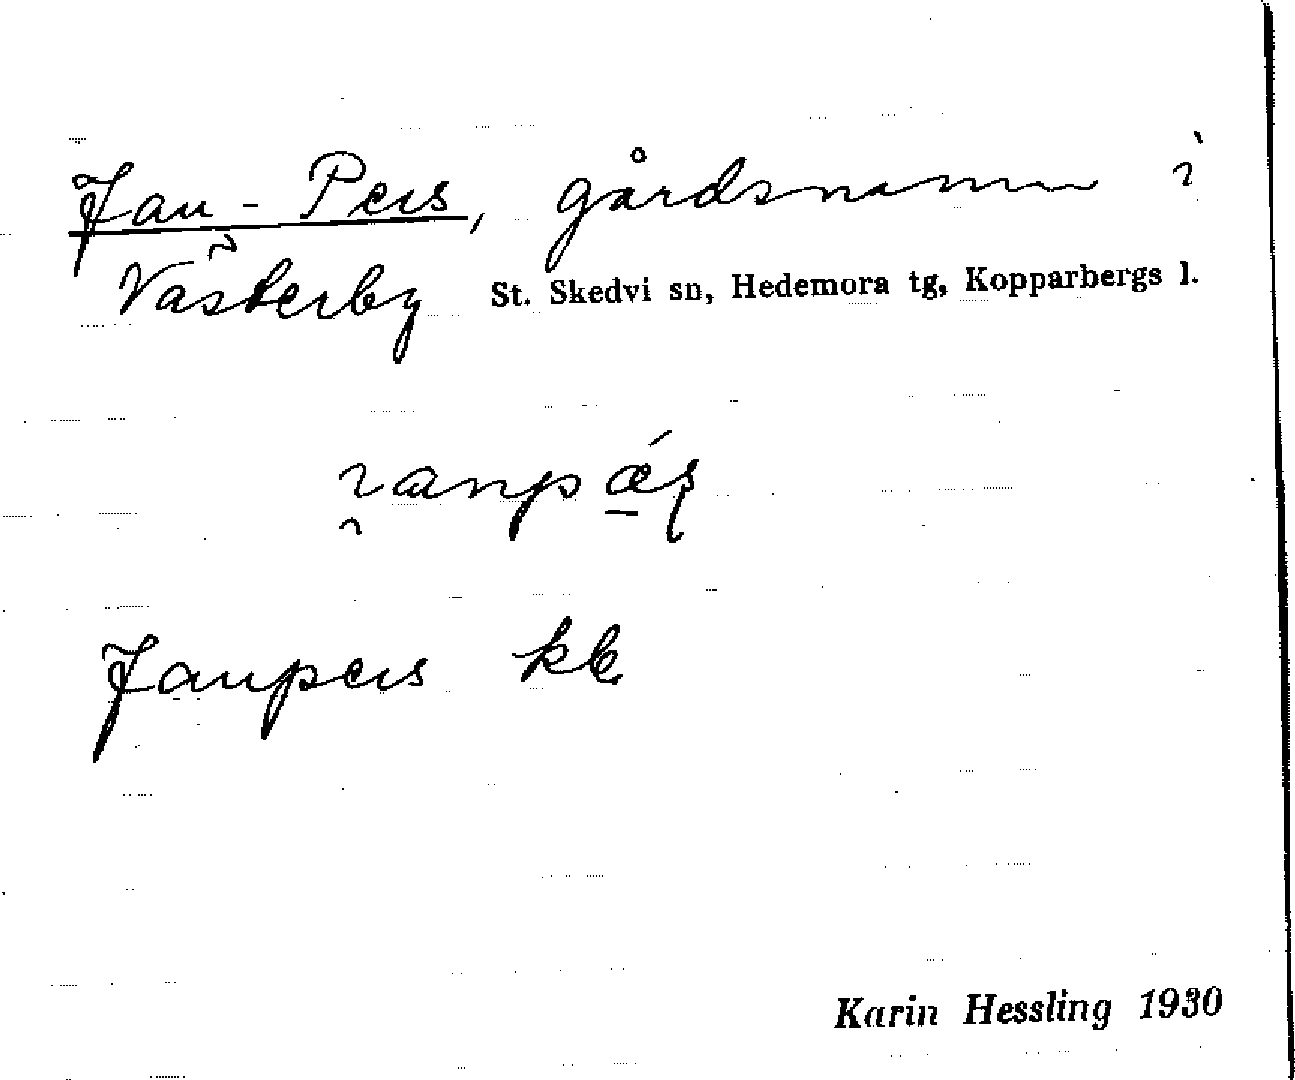 Jan-Pers, gårdsnamn i
Västerby St. Skedvi sn, Hedemora tg, Kopparbergs l.
Janpers kb
Karin Hessling 1930